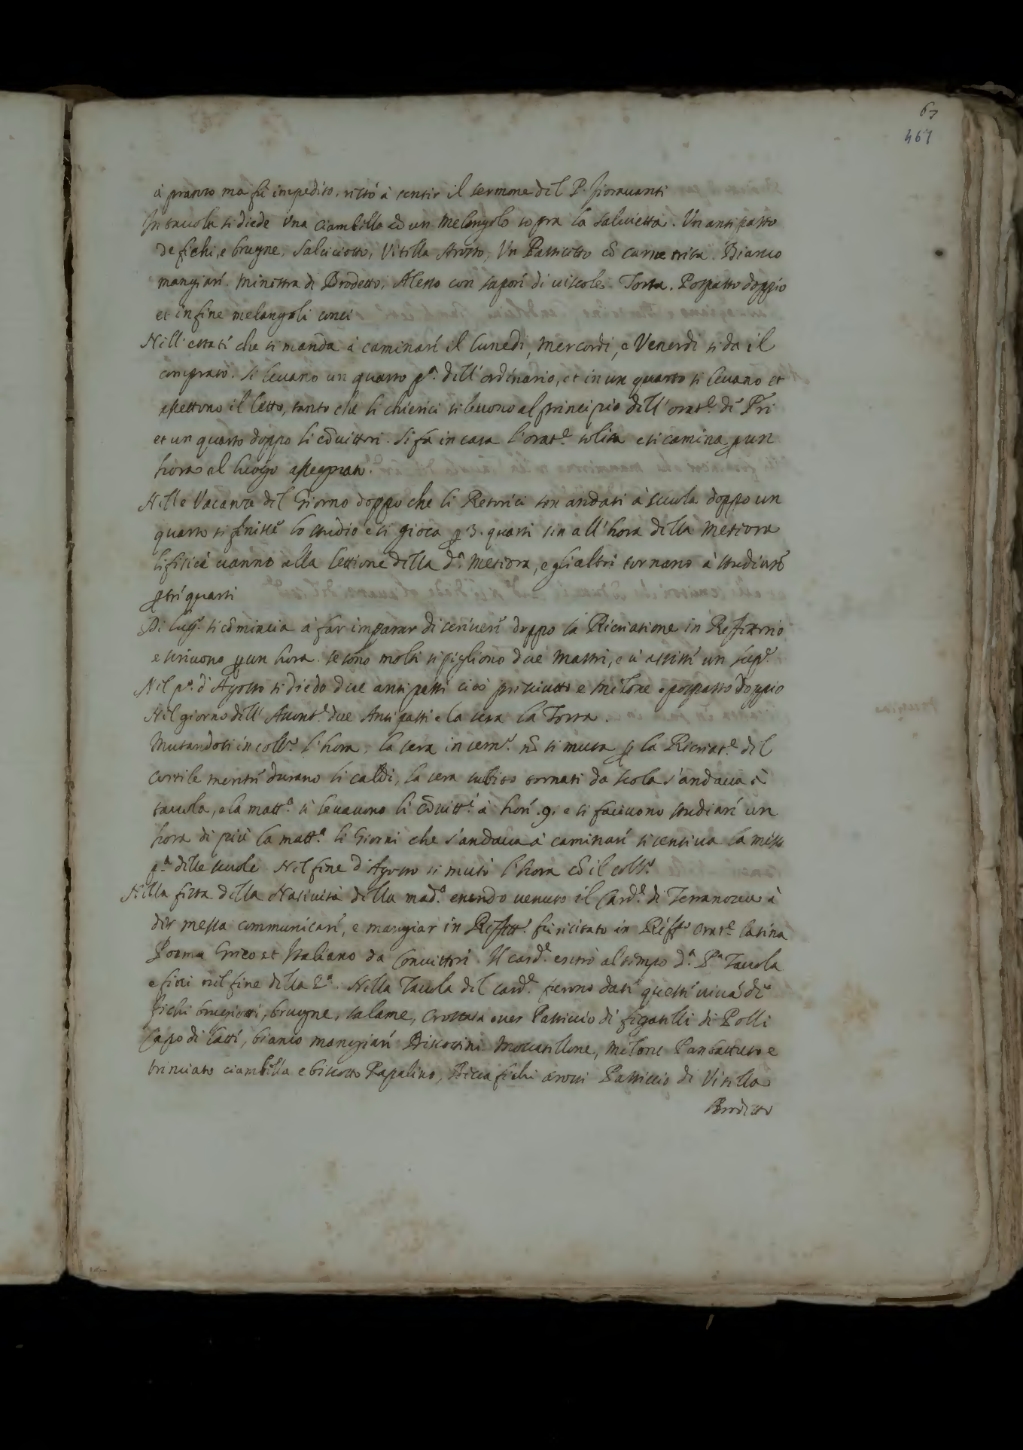 67
467
à pranzo ma fù impedito. restò à sentir il sermone del P. fioravanti
In tavola si diede una ciambella et un melangolo sopra la salvietta. Un antipasto
de fichi, e brugne. Salciciotto, Vitella arosto, Un Pasticcetto cõ carne trita. Bianco
mangiare. minestra di Brodetto, Alesso con sapore di visciole. Torta. Pospasto doppio
et in fine melangoli conci
Nell'estate che si manda à caminare il lunedì, mercordì, e Venerdì si da il
comprato. Si levano un quarto pª. dell'ordinario, et in un quarto si levano et
assettono il letto, tanto che li chierici si levono al principio dell'orat.e di Pri
et un quarto doppo li cõvittori. Si fà in casa l'orat.e solita e si camina p un
hora al luogo
Nelle Vacanze del Giorno doppo che li Retorici son andati à scuola doppo un
quarto si finisce lo studio e si gioca p 3. quarti sin all'hora della Meteora
li fisici vanno alla lettione della dª. Meteora, e gli altri tornano à studiare
p tre quarti
Di lug.o si comincia a far imparar di scrivere doppo la Ricreatione in Refettorio
e scrivono p un hora. se sono molti si pigliono due Mastri, e vi assiste un sup.e
Nel p.o d'Agosto si diedo due antipasti cioè presciutto e melone e pospasto doppio
Nel giorno dell'Assont.e due Antipasti e la sera la Torta.
Mutandosi in coll.o l'hora, la sera in sem.o nõ si muta p la Ricreat.e del
cortile mentre durano li caldi, la sera subito tornati da scola s'andava à
tavola, e la matt.a si levavono li cõvitt.i à hore .9. e si facevono studiare un
hora di più la matt.a li Giorni che s'andava à caminare si sentiva la messa
pª. delle scuole. Nel fine d'Agosto si mutò l'hora cõ il coll.o
Nella festa della Natività della mad.a essendo venuto il Card.e di Terranova à
dir messa communicare, e mangiar in Refett.o fù recitato in Reft.o Orat.e latina
Poema Greco et Italiano da Convittori. Il card.e entrò al tempo dª. Pª Tavola
e finì nel fine della 2ª. Nella Tavola del card.e furono date queste
fichi brugiotti, brugne, salame, Crostata over Pasticcio di figatelli di Polli
Capo di latte, bianco mangiare Biscottini Moscatellone, melone Panbattuto e
trinciato ciambella e biscotto Papalino, Beccafichi arosti Pasticcio di Vitella
Brodetto